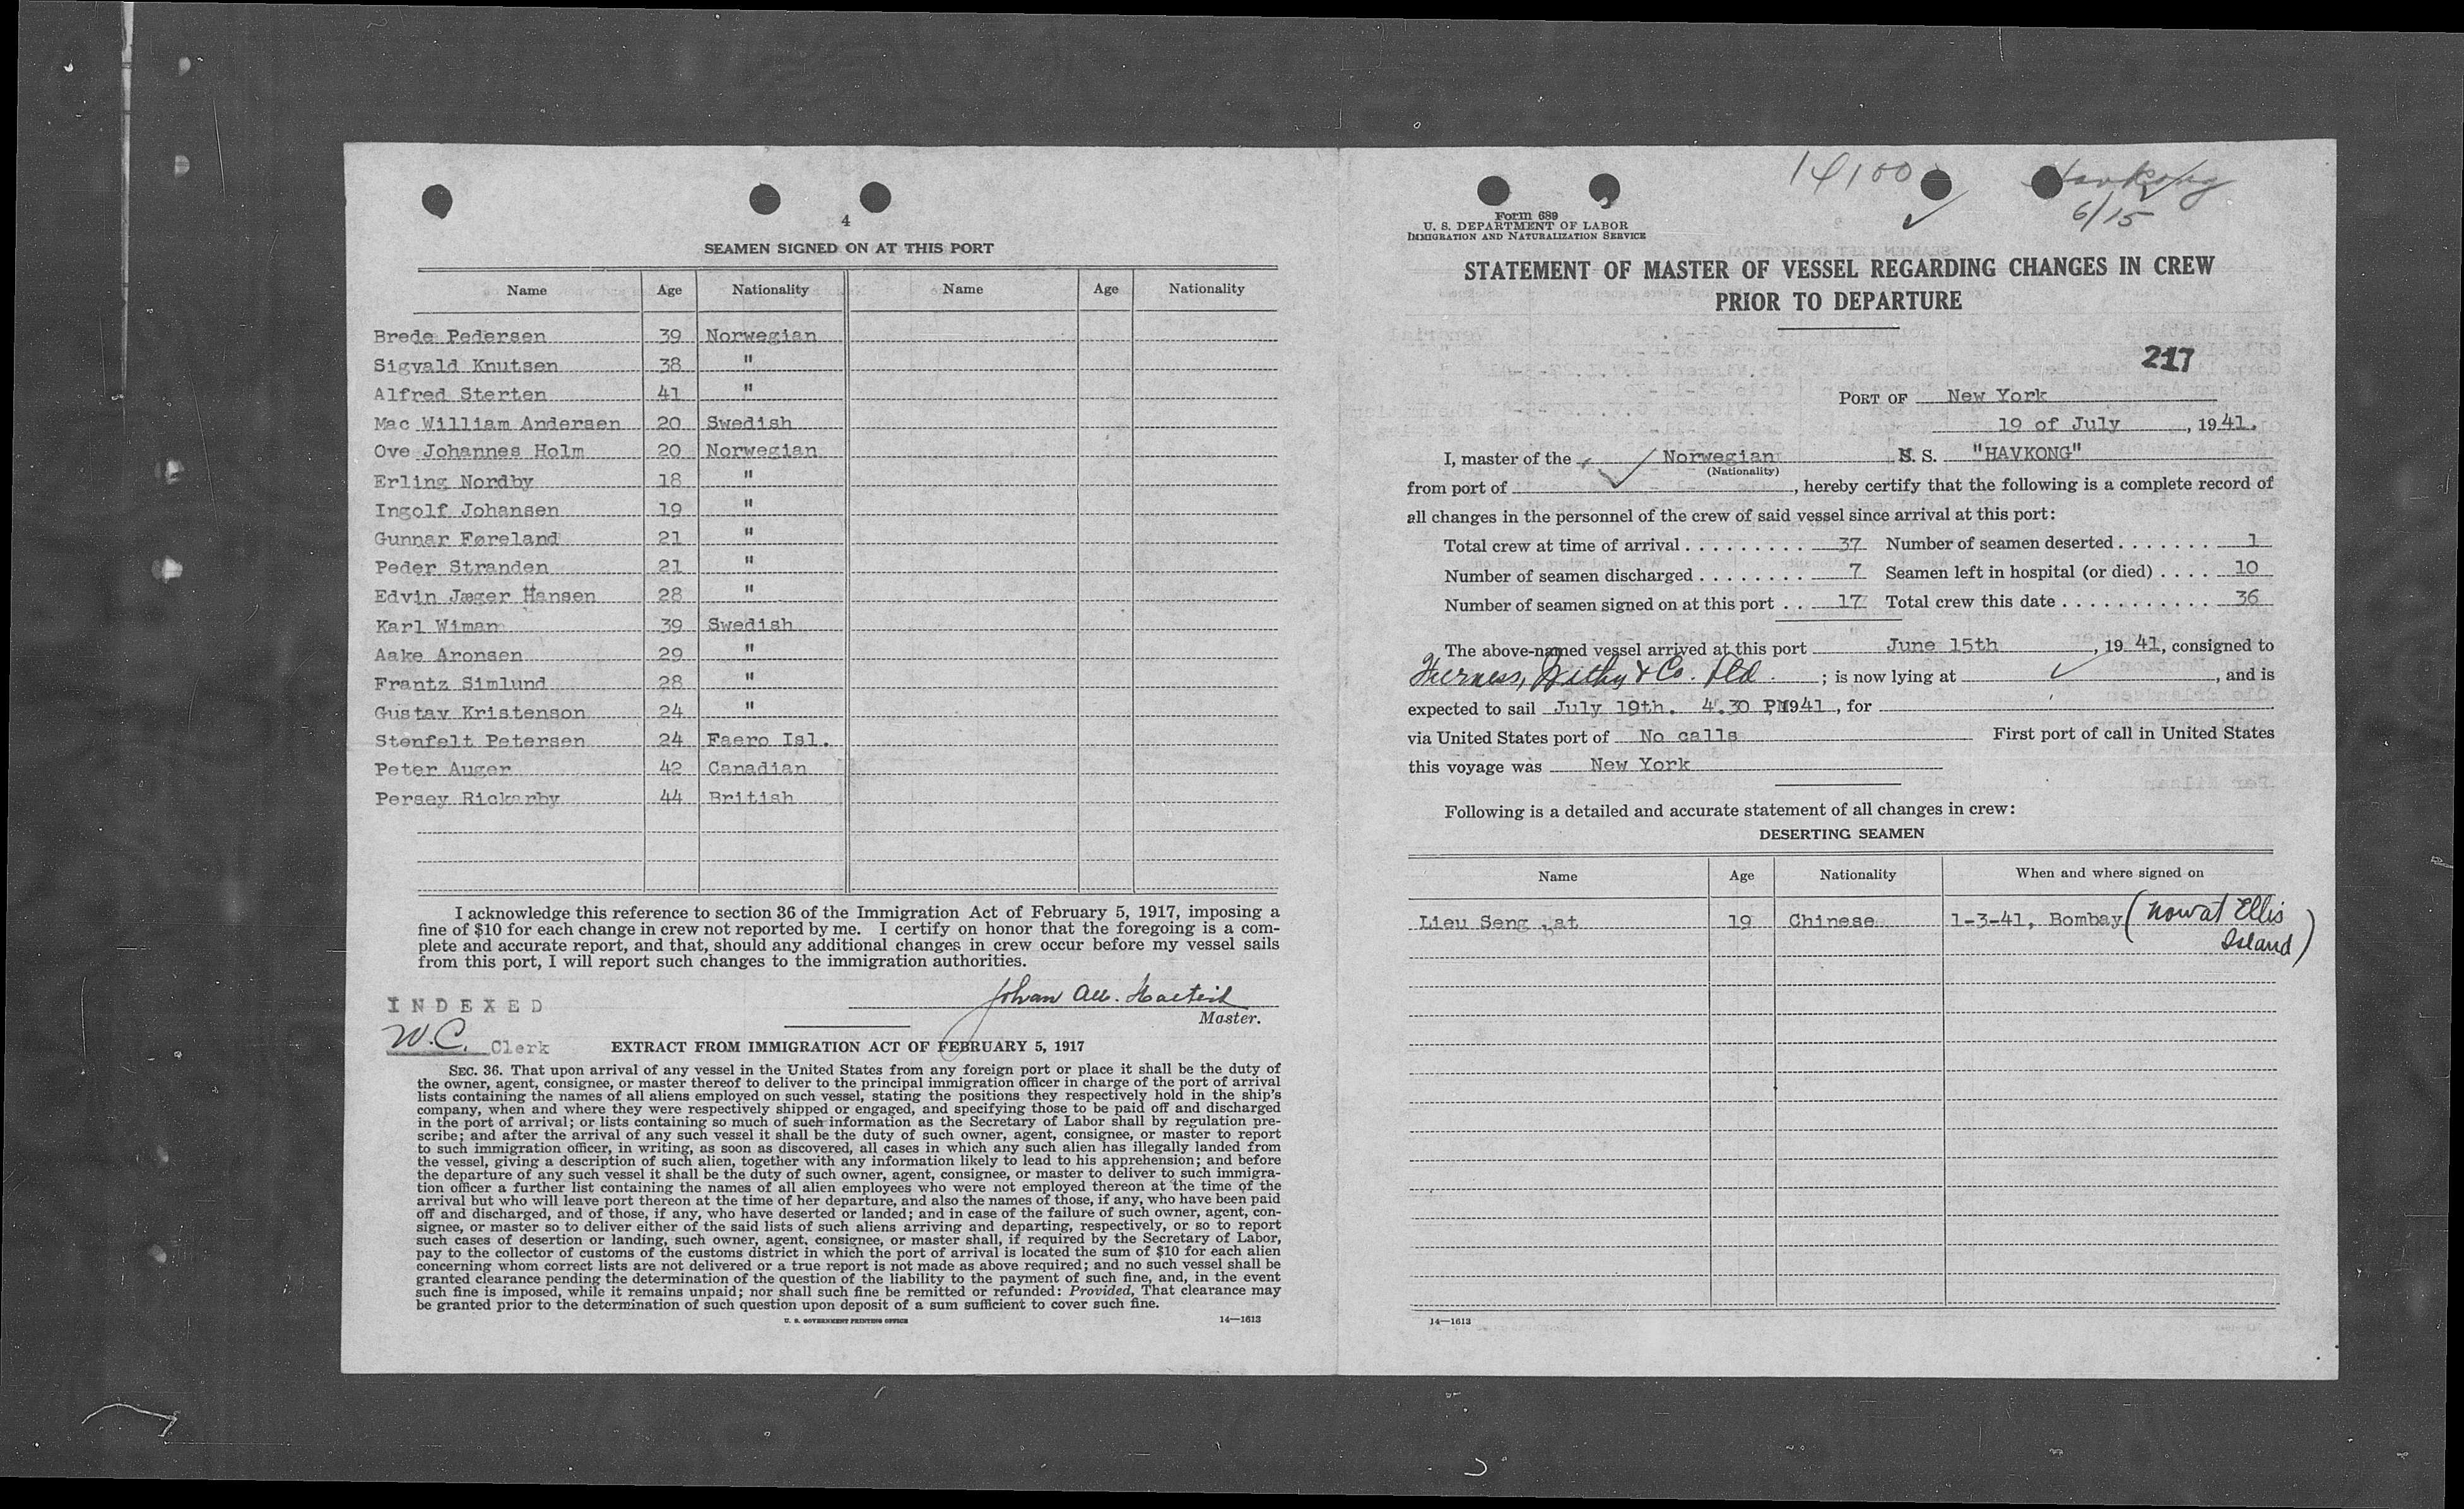 4
SEAMEN SIGNED ON AT THIS PORT
Name Age Nationality Name Age Nationality
Brede Pedersen 39 Norwegian
Sigvald Knutsen 38 "
Alfred Sterten 41 "
Mac William Andersen 20 Swedish
Ove Johannes Holm 20 Norwegian
Erling Nordby 18 "
Ingolf Johansen 19 "
Gunnar Føreland 21 "
Peder Stranden 21 "
Edvin Jæger Hansen 28 "
Karl Wiman 39 Swedish
Aake Aronsen 29 "
Frantz Simlund 28 "
Gustav Kristenson 24 "
Stenfelt Petersen 24 Faero Isl.
Peter Auger 42 Canadian
Persey Rickarby 44 British
I acknowledge this reference to section 36 of the Immigration Act of February 5, 1917, imposing a
fine of $10 for each change in crew not reported by me. I certify on honor that the foregoing is a com-
plete and accurate report, and that, should any additional changes in crew occur before my vessel sails
from this port, I will report such changes to the immigration authorities.
Johan
Master.
INDEXED
W.C. Clerk
EXTRACT FROM IMMIGRATION ACT OF FEBRUARY 5, 1917
SEC. 36. That upon arrival of any vessel in the United States from any foreign port or place it shall be the duty of
the owner, agent, consignee, or master thereof to deliver to the principal immigration officer in charge of the port of arrival
lists containing the names of all aliens employed on such vessel, stating the positions they respectively hold in the ship's
company, when and where they were respectively shipped or engaged, and specifying those to be paid off and discharged
in the port of arrival; or lists containing so much of such information as the Secretary of Labor shall by regulation pre-
scribe; and after the arrival of any such vessel it shall be the duty of such owner, agent, consignee, or master to report
to such immigration officer, in writing, as soon as discovered, all cases in which any such alien has illegally landed from
the vessel, giving a description of such alien, together with any information likely to lead to his apprehension; and before
the departure of any such vessel it shall be the duty of such owner, agent, consignee, or master to deliver to such immigra-
tion officer a further list containing the names of all alien employees who were not employed thereon at the time of the
arrival but who will leave port thereon at the time of her departure, and also the names of those, if any, who have been paid
off and discharged, and of those, if any, who have deserted or landed; and in case of the failure of such owner, agent, con-
signee, or master so to deliver either of the said lists of such aliens arriving and departing, respectively, or so to report
such cases of desertion or landing, such owner, agent, consignee, or master shall, if required by the Secretary of Labor,
pay to the collector of customs of the customs district in which the port of arrival is located the sum of $10 for each alien
concerning whom correct lists are not delivered or a true report is not made as above required; and no such vessel shall be
granted clearance pending the determination of the question of the liability to the payment of such fine, and, in the event
such fine is imposed, while it remains unpaid; nor shall such fine be remitted or refunded: Provided, That clearance may
be granted prior to the determination of such question upon deposit of a sum sufficient to cover such fine.
U. S. GOVERNMENT PRINTING OFFICE 14—1613
14100 Havkong
6/15
Form 689
U. S. DEPARTMENT OF LABOR
IMMIGRATION AND NATURALIZATION SERVICE
STATEMENT OF MASTER OF VESSEL REGARDING CHANGES IN CREW
PRIOR TO DEPARTURE
217
PORT OF New York
19 of July, 1941.
I, master of the Norwegian S. S. "HAVKONG"
(Nationality)
from port of , hereby certify that the following is a complete record of
all changes in the personnel of the crew of said vessel since arrival at this port:
Total crew at time of arrival . . . . . . . . . 37 Number of seamen deserted . . . . . . . 1
Number of seamen discharged . . . . . . . . 7 Seamen left in hospital (or died) . . . . 10
Number of seamen signed on at this port . . 17 Total crew this date . . . . . . . . . . . . 36
The above-named vessel arrived at this port June 15th, 1941, consigned to
Furness, Withy & Co. Ltd. ; is now lying at , and is
expected to sail July 19th. 4.30 PM 1941, for
via United States port of No calls First port of call in United States
this voyage was New York
Following is a detailed and accurate statement of all changes in crew:
DESERTING SEAMEN
Name Age Nationality When and where signed on
Lieu Seng at 19 Chinese 1-3-41, Bombay (now at Ellis
Island)
14—1613